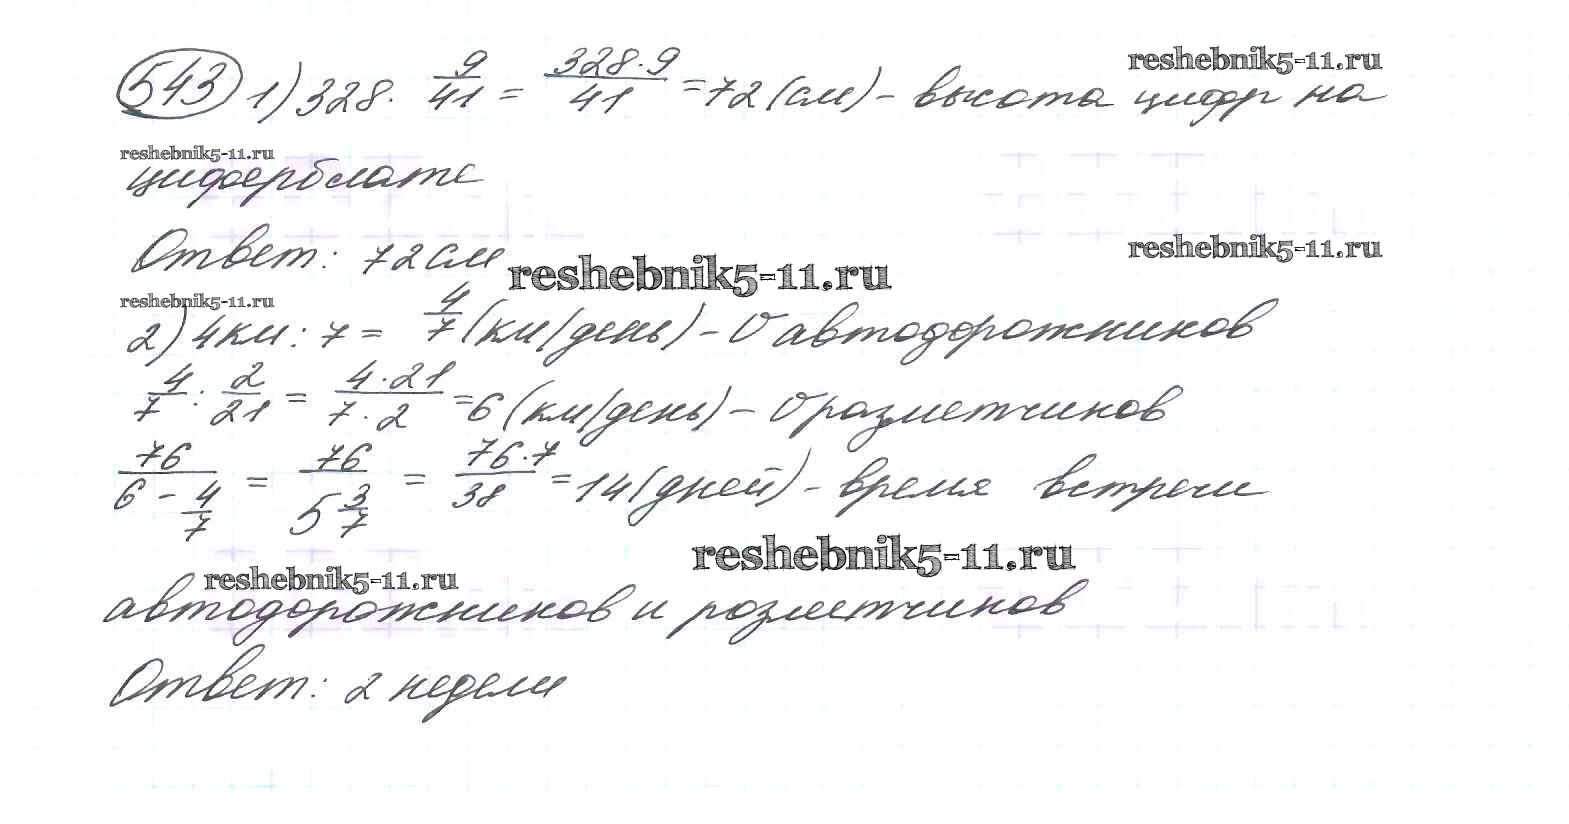 543 1) 328 · 9/41 = 328·9/41 = 72 (см) – высота цифр на
reshebnik5-11.ru
reshebnik5-11.ru
циферблате
Ответ: 72 см
reshebnik5-11.ru
reshebnik5-11.ru
reshebnik5-11.ru
2) 4 км : 7 = 4/7 (км/день) – υ автодорожников
4/7 : 2/21 = 4·21/7·2 = 6 (км/день) – υ разметчиков
76/(6 – 4/7) = 76/(5 3/7) = 76·7/38 = 14 (дней) – время встречи
reshebnik5-11.ru
reshebnik5-11.ru
автодорожников и розметчиков
Ответ: 2 недели